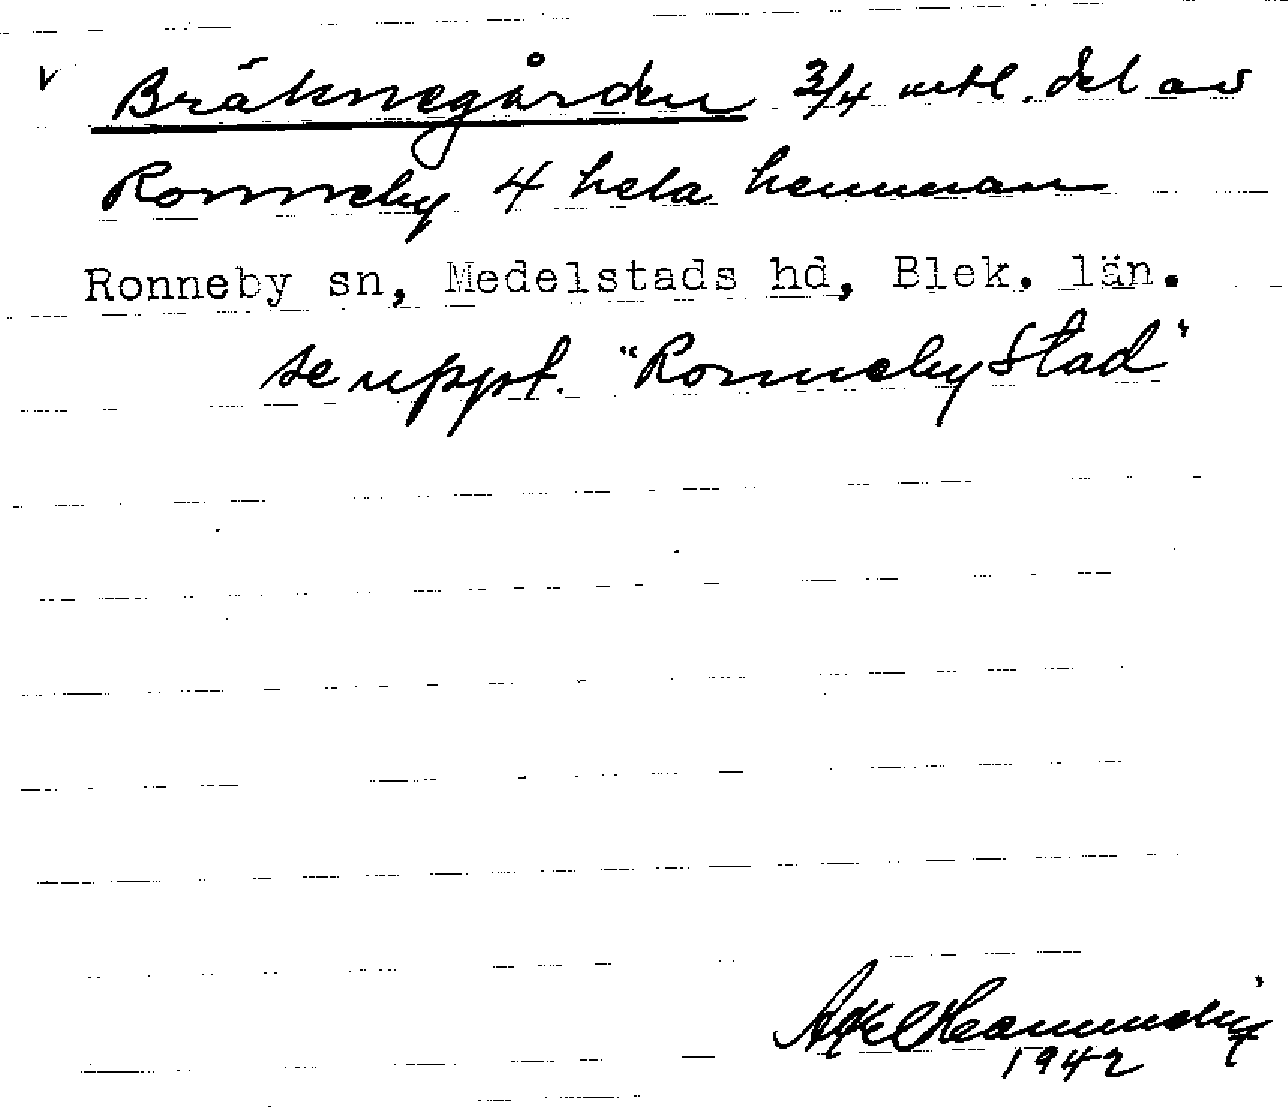 v Bräknegården 3/4 mtl. del av
Ronneby 4 hela hemman
Ronneby sn, Medelstads hd, Blek. län.
se uppt. "Ronneby Stad"
1942